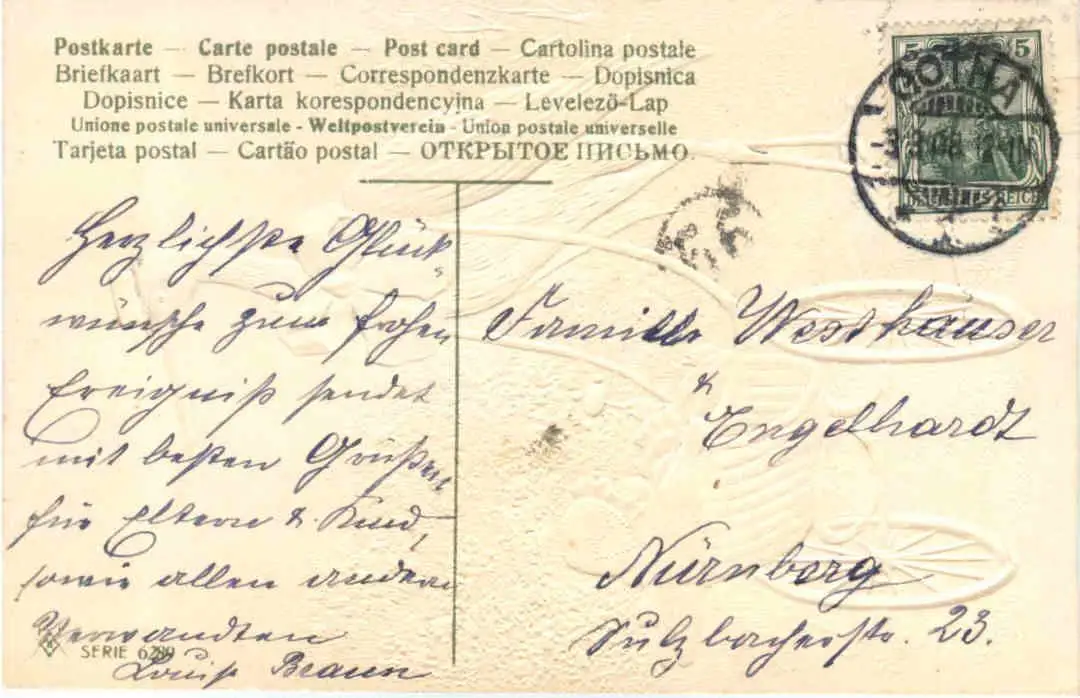 Postkarte — Carte postale — Post card — Cartolina postale
Briefkaart — Brefkort — Correspondenzkarte — Dopisnica
Dopisnice — Karta korespondencyjna — Levelező-Lap
Unione postale universale - Weltpostverein - Union postale universelle
Tarjeta postal — Cartão postal — ОТКРЫТОЕ ПИСЬМО.
5 5
GOTHA
DEUTSCHES REICH
Herzlichste Glück-
wünsche zum frohen
Ereigniß sendet
mit besten Grüßen
für Eltern & Kind,
sowie allen andern
Verwandten
Louise Braun
SERIE 6289
Familie Westhäuser
&
Engelhardt
Nürnberg
Sulzbacherstr. 23.